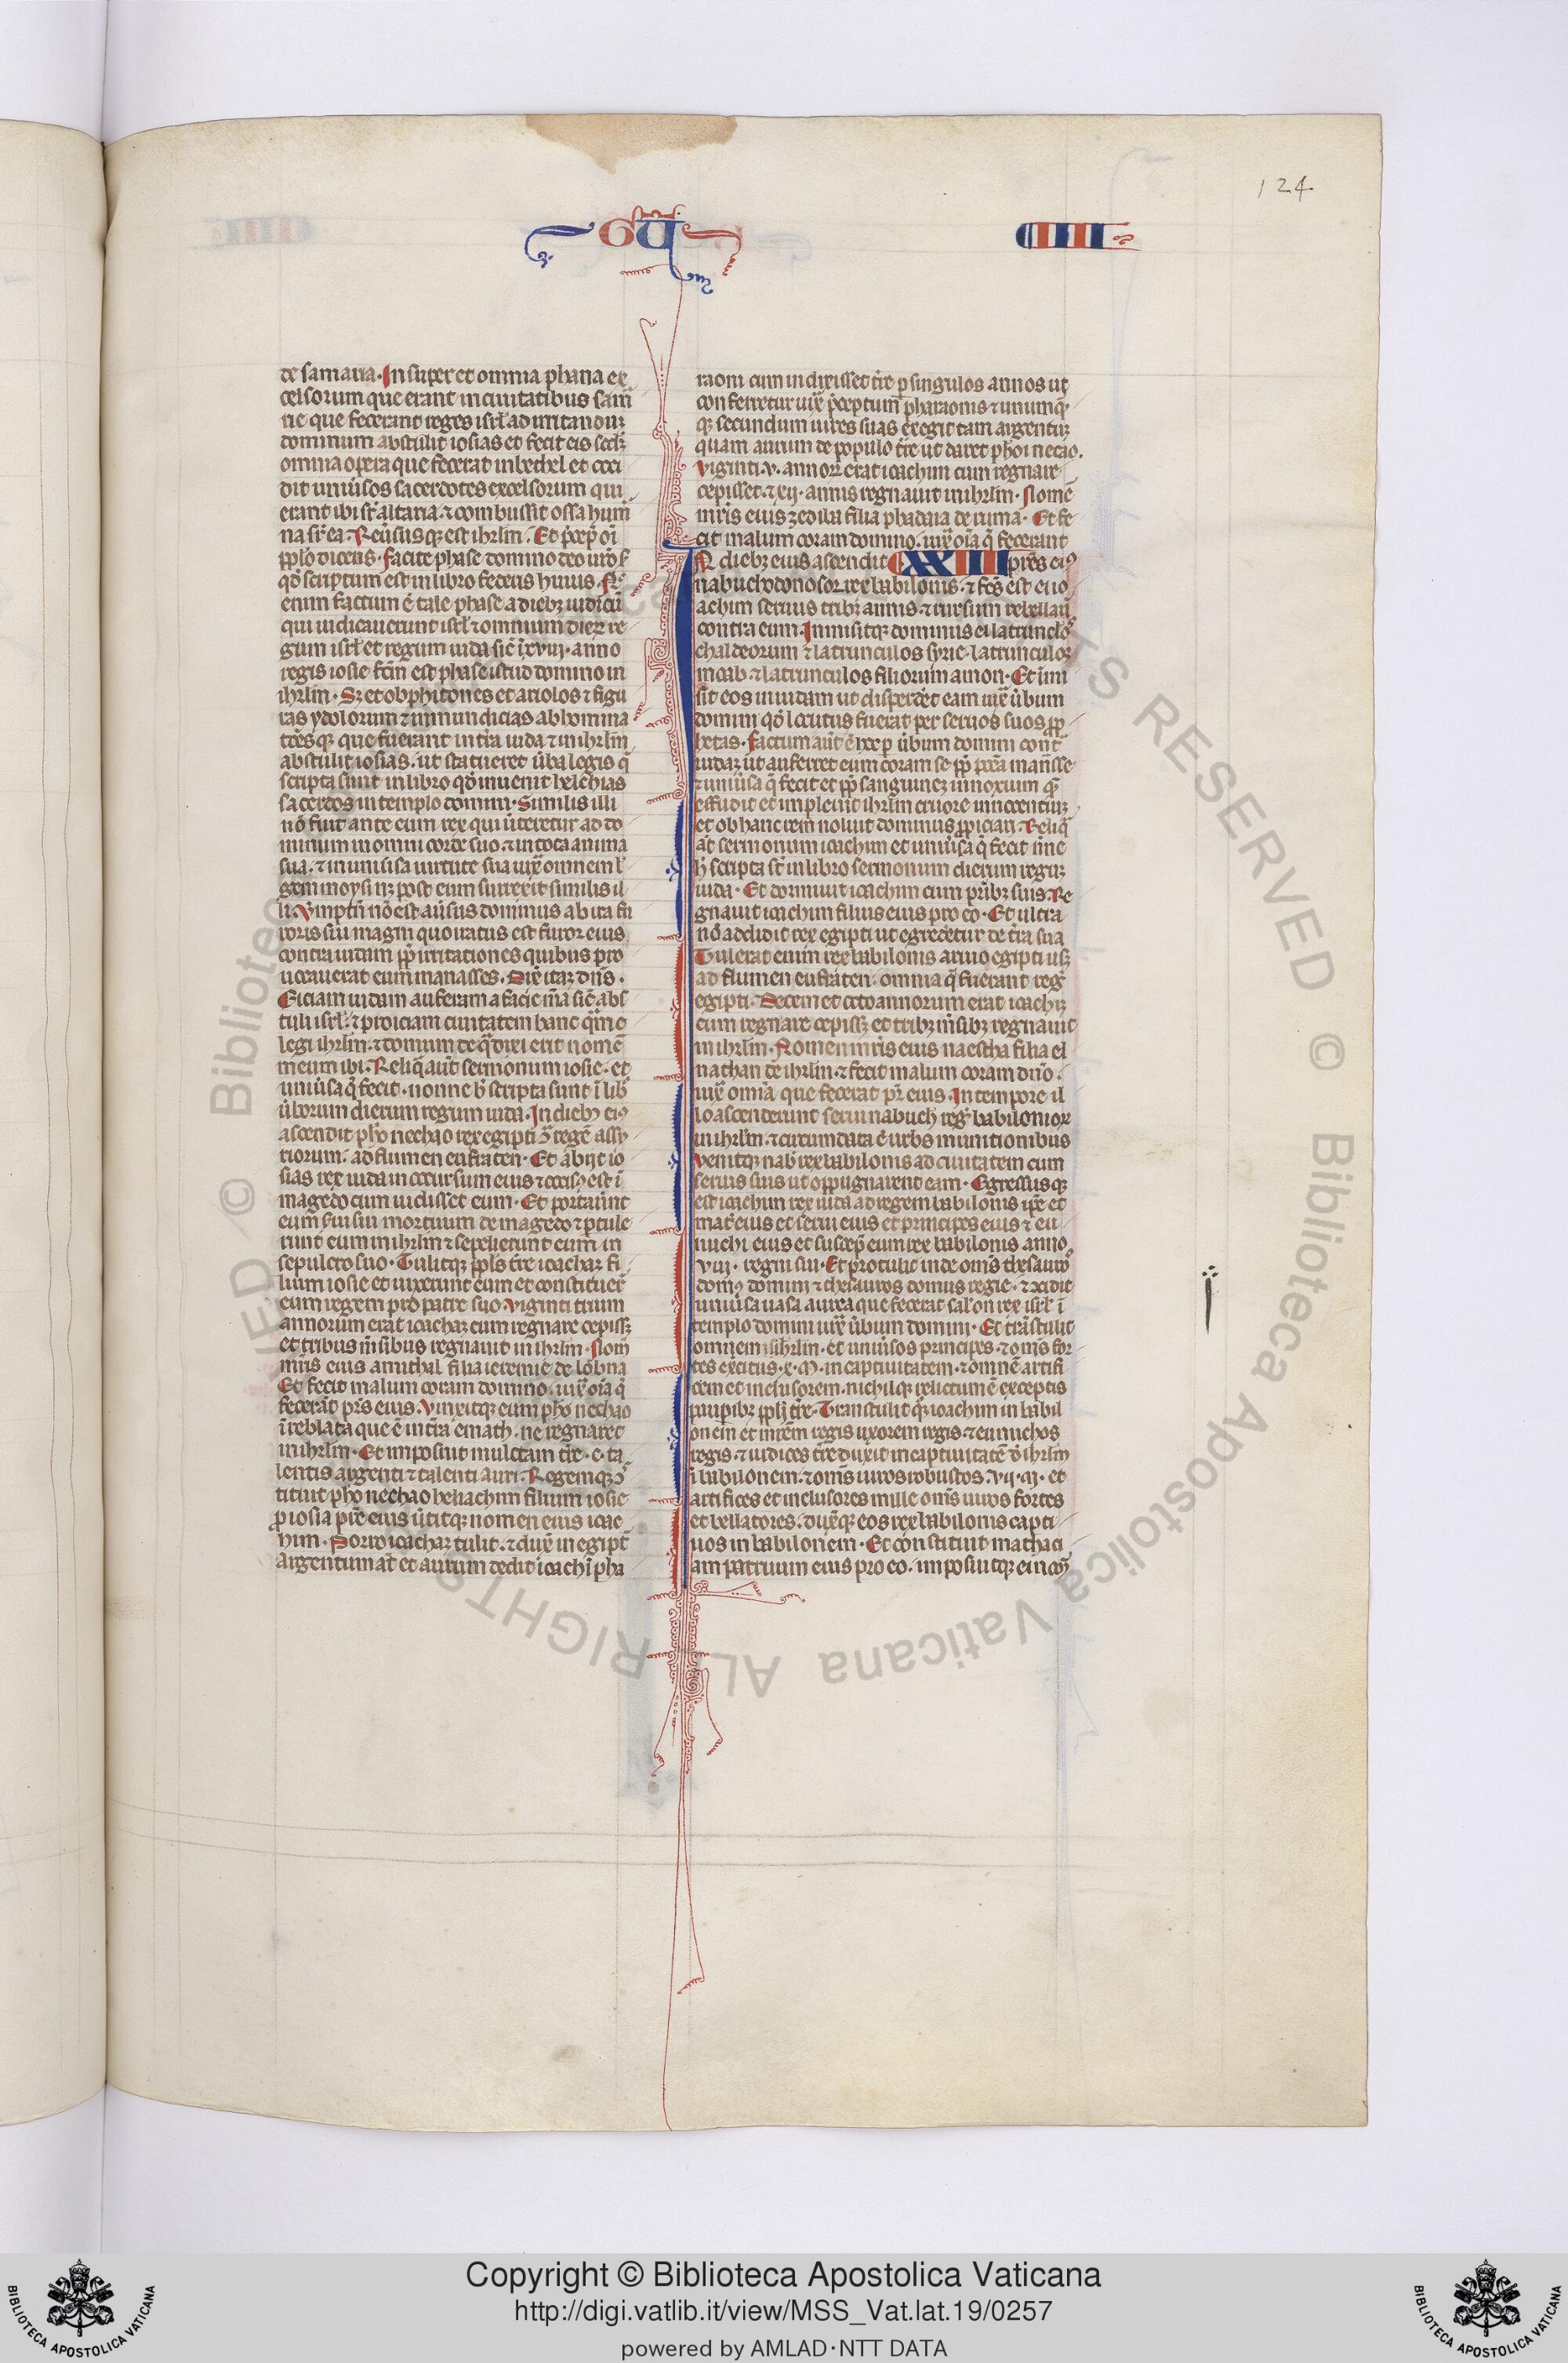 124
GŪ
IIII
de samaria. Insuper et omnia phana ex
celsorum que erant in ciuitatibus sam̄
rie que fecerant reges isrł ad irritandūꝫ
dominum abstulit iosias et fecit eis secd̄ꝫ
omnia opera que fecerat in bethel et occi
dit uniu̓sos sacerdotes excelsorum qui
erant ibi sr̄ altaria ⁊ combussit ossa hum̄
na sr̄ ea. Reu̓susqꝫ est ihrlm̄. Et p̄cep̄ oī
pplo dicens. facite phase domino deo urō s̄
qd̓ scriptum est in libro federis huius. Nͨ
enim factum ē tale phase a diebꝫ iudicū
qui iudicauerunt isrł ⁊ omnium dieꝝ re
gum isrł et regum iuda sic̄ ī xviij. anno
regis iosie fcm̄ est phase istud domino in
ihrlm̄. Sꝫ et ob phitones et ariolos ⁊ figu
ras ydolorum ⁊ inmundicias abhomina
tōesqꝫ que fuerant in tr̄a iuda ⁊ in ihrlm̄
abstulit iosias. ut statueret u̓ba legis q̄
scripta sunt in libro qd̓ inuenit helchias
sacerdos in templo domini. Similis illi
nō fuit ante eum rex qui u̓teretur ad do
minum in omni corde suo. ⁊ in tota anima
sua. ⁊ in uniu̓sa uirtute sua iux̄ omnem l̄
gem moysi nꝫ post eum surrexit similis il
li. Ump̄tn̄ nō est au̓sus dominus ab ira fu
roris sui magni quo iratus est furor eius
contra iudam pp̄ irritationes quibus pro
uocauerat eum manasses. Dix̄ itaꝫ dn̄s.
Eciam iudam auferam a facie m̄a sic̄ abs
tuli isrł. ⁊ proiciam ciuitatem hanc q̄m e
legi ihrlm̄. ⁊ domum de q̄ dixi erit nomē
meum ibi. Reliq̄ aut̄ sermonum iosie. et
uniu̓sa q̄ fecit. nonne h̄ scripta sunt ī lib̄
u̓borum dierum regum iuda. In diebꝫ eiꝰ
ascendit pho̓ nechao rex egipti ꝯ̄ regē assy
riorum. ad flumen eufraten. Et abijt io
sias rex iuda in occursum eius ⁊ occisꝰ est ī
magedo cum uidisset eum. Et portauer̄nt
eum sui sui mortuum de magedo ⁊ p̱tule
runt eum in ihrlm̄ ⁊ sepelierunt eum in
sepulcro suo. Tulitqꝫ ppl̄s tr̄e ioachaz fi
lium iosie et unxerunt eum et constituer̄
eum regem pro patre suo. Viginti trium
annorum erat ioachaz cum regnare cepissꝫ
et tribus m̄sibus regnauit in ihrlm̄. Nom̄
mr̄is eius amithal filia ieremie de lobna
Et fecit malum coram domino. iux̄ oīa q̄
fecerāt pr̄s eius. Vinxitqꝫ eum pho̓ nechao
ī reblata que ē in tr̄a emath. ne regnaret
in ihrlm̄. Et imposuit mulctam tr̄e. c. ta
lentis argenti ⁊ talenti auri. Regemqꝫ ꝯ̄
tituit pho̓ nechao heliachim filium iosie
p̱ iosia pr̄e eius u̓titqꝫ nomen eius ioac
him. Porro ioachaz tulit. ⁊ dux̄ in egipt̄
argentum at̄ et aurum dedit ioachī pha
raoni cum indixisset tr̄e p̱ singulos annos ut
conferretur iux̄ p̄ceptum pharaonis ⁊ unumq̄
qꝫ secundum uires suas exegit tam argentūꝫ
quam aurum de populo tr̄e ut daret pho̓i necao.
Viginti. v. annoꝝ erat ioachim cum regnare
cepisset. ⁊ xij. annis regnauit in ihrlm̄. Nomē
mr̄is eius zedila filia phadaia de ruma. Et fe
cit malum coram domino. iux̄ oīa q̄ fecerant
IN diebꝫ eius ascendit XXIIII pr̄es eiꝰ
nabuchodonosor rex babilonis. ⁊ fc̄s est ei io
achim seruus tribꝫ annis. ⁊ rursum rebellau̓
contra eum. Inmisitqꝫ dominus ei latrunclōs
chaldeorum ⁊ latrunculos syrie. latrunculos
moab. ⁊ latrunculos filiorum amon. Et imi
sit eos in iudam ut disperderet eam iux̄ u̓bum
domini qd̓ locutus fuerat per seruos suos pp̱
hetas. factum aut̄ ē hoc p̱ u̓bum domini cont̄
iudaꝫ ut auferret eum coram se pp̄ pcc̄a manasse
⁊ uniu̓sa q̄ fecit et pp̄ sanguineꝫ innoxium q̄
effudit et impleuit ihrlm̄ cruore innocentiūꝫ
et ob hanc rem noluit dominus pp̱iciari. Reliq̄
aūt sermonum ioachim et uniu̓sa q̄ fecit nn̄e
h̄ scripta st̄ in libro sermonum dierum reguꝫ
iuda. Et dormiuit ioachim cum pr̄ibꝫ suis. Re
gnauit ioachim filius eius pro eo. Et ultra
nō addidit rex egipti ut egrederetur de tr̄a sua
Tulerat enim rex babilonis a riuo egipti usqꝫ
ad flumen eufraten. omnia q̄ fuerant reḡ
egipti. Decem et octo annorum erat ioachiꝫ
cum regnare cepissꝫ et tribꝫ m̄sibꝫ regnauit
in ihrlm̄. Nomen mr̄is eius naestha filia el
nathan de ihrlm̄. ⁊ fecit malum coram dn̄o.
iux̄ omīa que fecerat pr̄ eius. In tempore il
lo ascenderunt serui nabuch reḡ babilonioꝝ
in ihrlm̄. ⁊ circumdata ē urbs munitionibus
Venitqꝫ nab̄ rex babilonis ad ciuitatem cum
seruis suis ut oppugnarent eam. Egressusqꝫ
est ioachim rex iuda ad regem babilonis ip̄e et
mat̄ eius et serui eius et principes eius ⁊ eu
nuchi eius et suscep̄ eum rex babilonis anno
viij. regni sui. Et protulit inde om̄s thesauro̓
domꝰ domini ⁊ thesauros domus regie. ⁊ ꝯcidit
uniu̓sa uasa aurea que fecerat salōon rex isrł ī
templo domini iux̄ u̓bum domini. Et trāstulit
omnem ihrlm̄. et uniu̓sos principes. ⁊ om̄s for
tes exc̄itus. x. M. in captiuitatem. ⁊ omnē artifi
cem et inclusorem. nichilqꝫ relictum ē exceptis
paup̱ibꝫ ppl̄i tr̄e. Transtulit qͦꝫ ioachim in babil
onem et mr̄em regis uxorem regis. ⁊ eunuchos
regis. ⁊ iudices tr̄e duxit in captiuitatē d̓ ihrlm̄
ī babilonem. ⁊ om̄s uiros robustos. vij. M. et
artifices et inclusores mille om̄s uiros fortes
et bellatores. duxitqꝫ eos rex babilonis capti
uos in babilonem. Et constituit mathani
am patruum eius pro eo. imposuitqꝫ ei nom̄
Copyright © Biblioteca Apostolica Vaticana
http://digi.vatlib.it/view/MSS_Vat.lat.19/0257
powered by AMLAD·NTT DATA